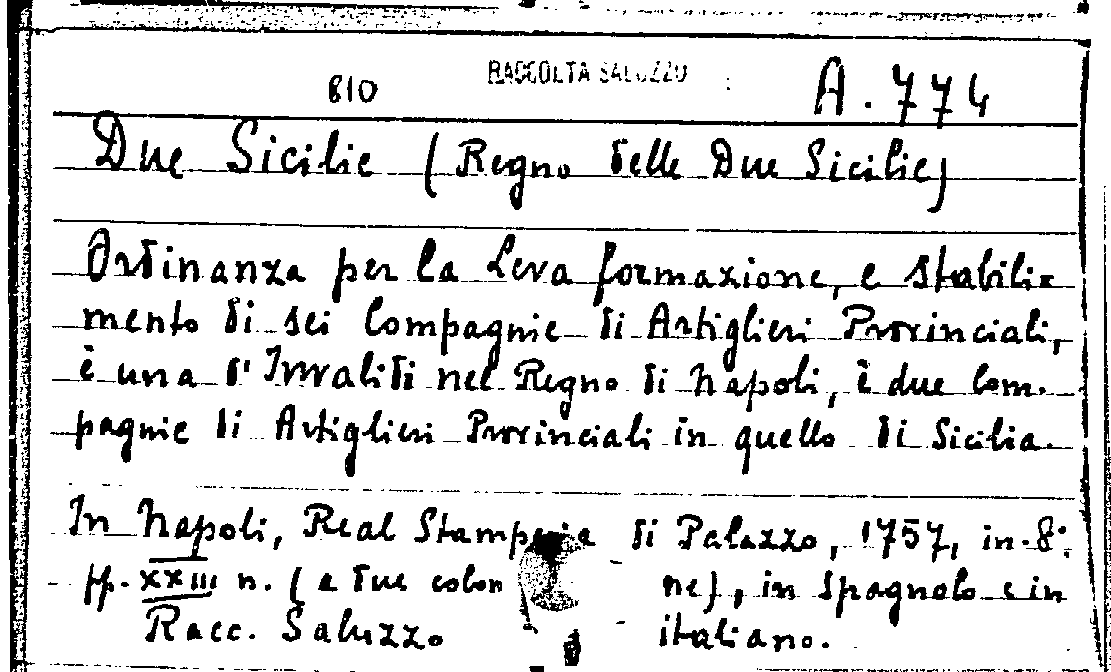 810 RACCOLTA SALUZZO A. 774
Due Sicilie (Regno delle Due Sicilie)
Ordinanza per la Leva formazione, e stabili=
mento di sei Compagnie di Artiglieri Provinciali,
è una d'Invalidi nel Regno di Napoli, è due Com-
pagnie di Artiglieri Provinciali in quello di Sicilia.
In Napoli, Real Stamperia di Palazzo, 1757, in-8°.
pp. XXIII n. (a due colonne), in Spagnolo e in
Racc. Saluzzo italiano.